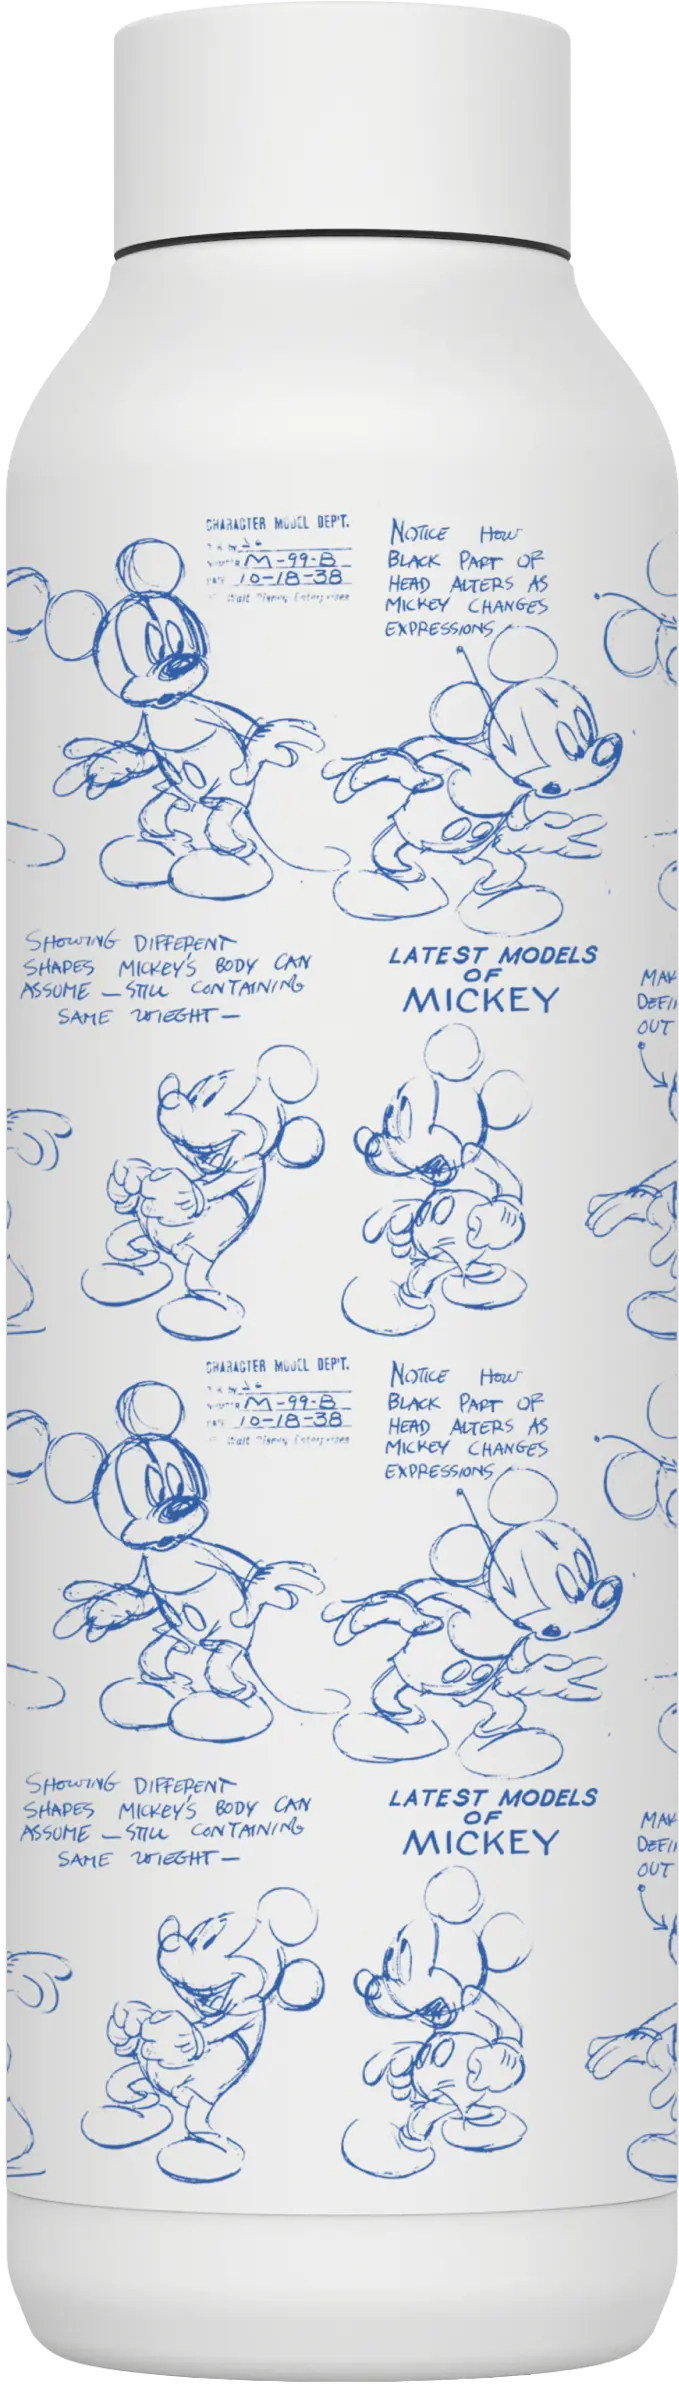 CHARACTER MODEL DEP'T.
M-99-B
DATE 10-18-38
Walt Disney Enterprises
NOTICE HOW
BLACK PART OF
HEAD ALTERS AS
MICKEY CHANGES
EXPRESSIONS
SHOWING DIFFERENT
SHAPES MICKEY'S BODY CAN
ASSUME — STILL CONTAINING
SAME WIEGHT —
LATEST MODELS
OF
MICKEY
MAK
DEFI
OUT
CHARACTER MODEL DEP'T.
M-99-B
DATE 10-18-38
Walt Disney Enterprises
NOTICE HOW
BLACK PART OF
HEAD ALTERS AS
MICKEY CHANGES
EXPRESSIONS
SHOWING DIFFERENT
SHAPES MICKEY'S BODY CAN
ASSUME — STILL CONTAINING
SAME WIEGHT —
LATEST MODELS
OF
MICKEY
MAK
DEFI
OUT